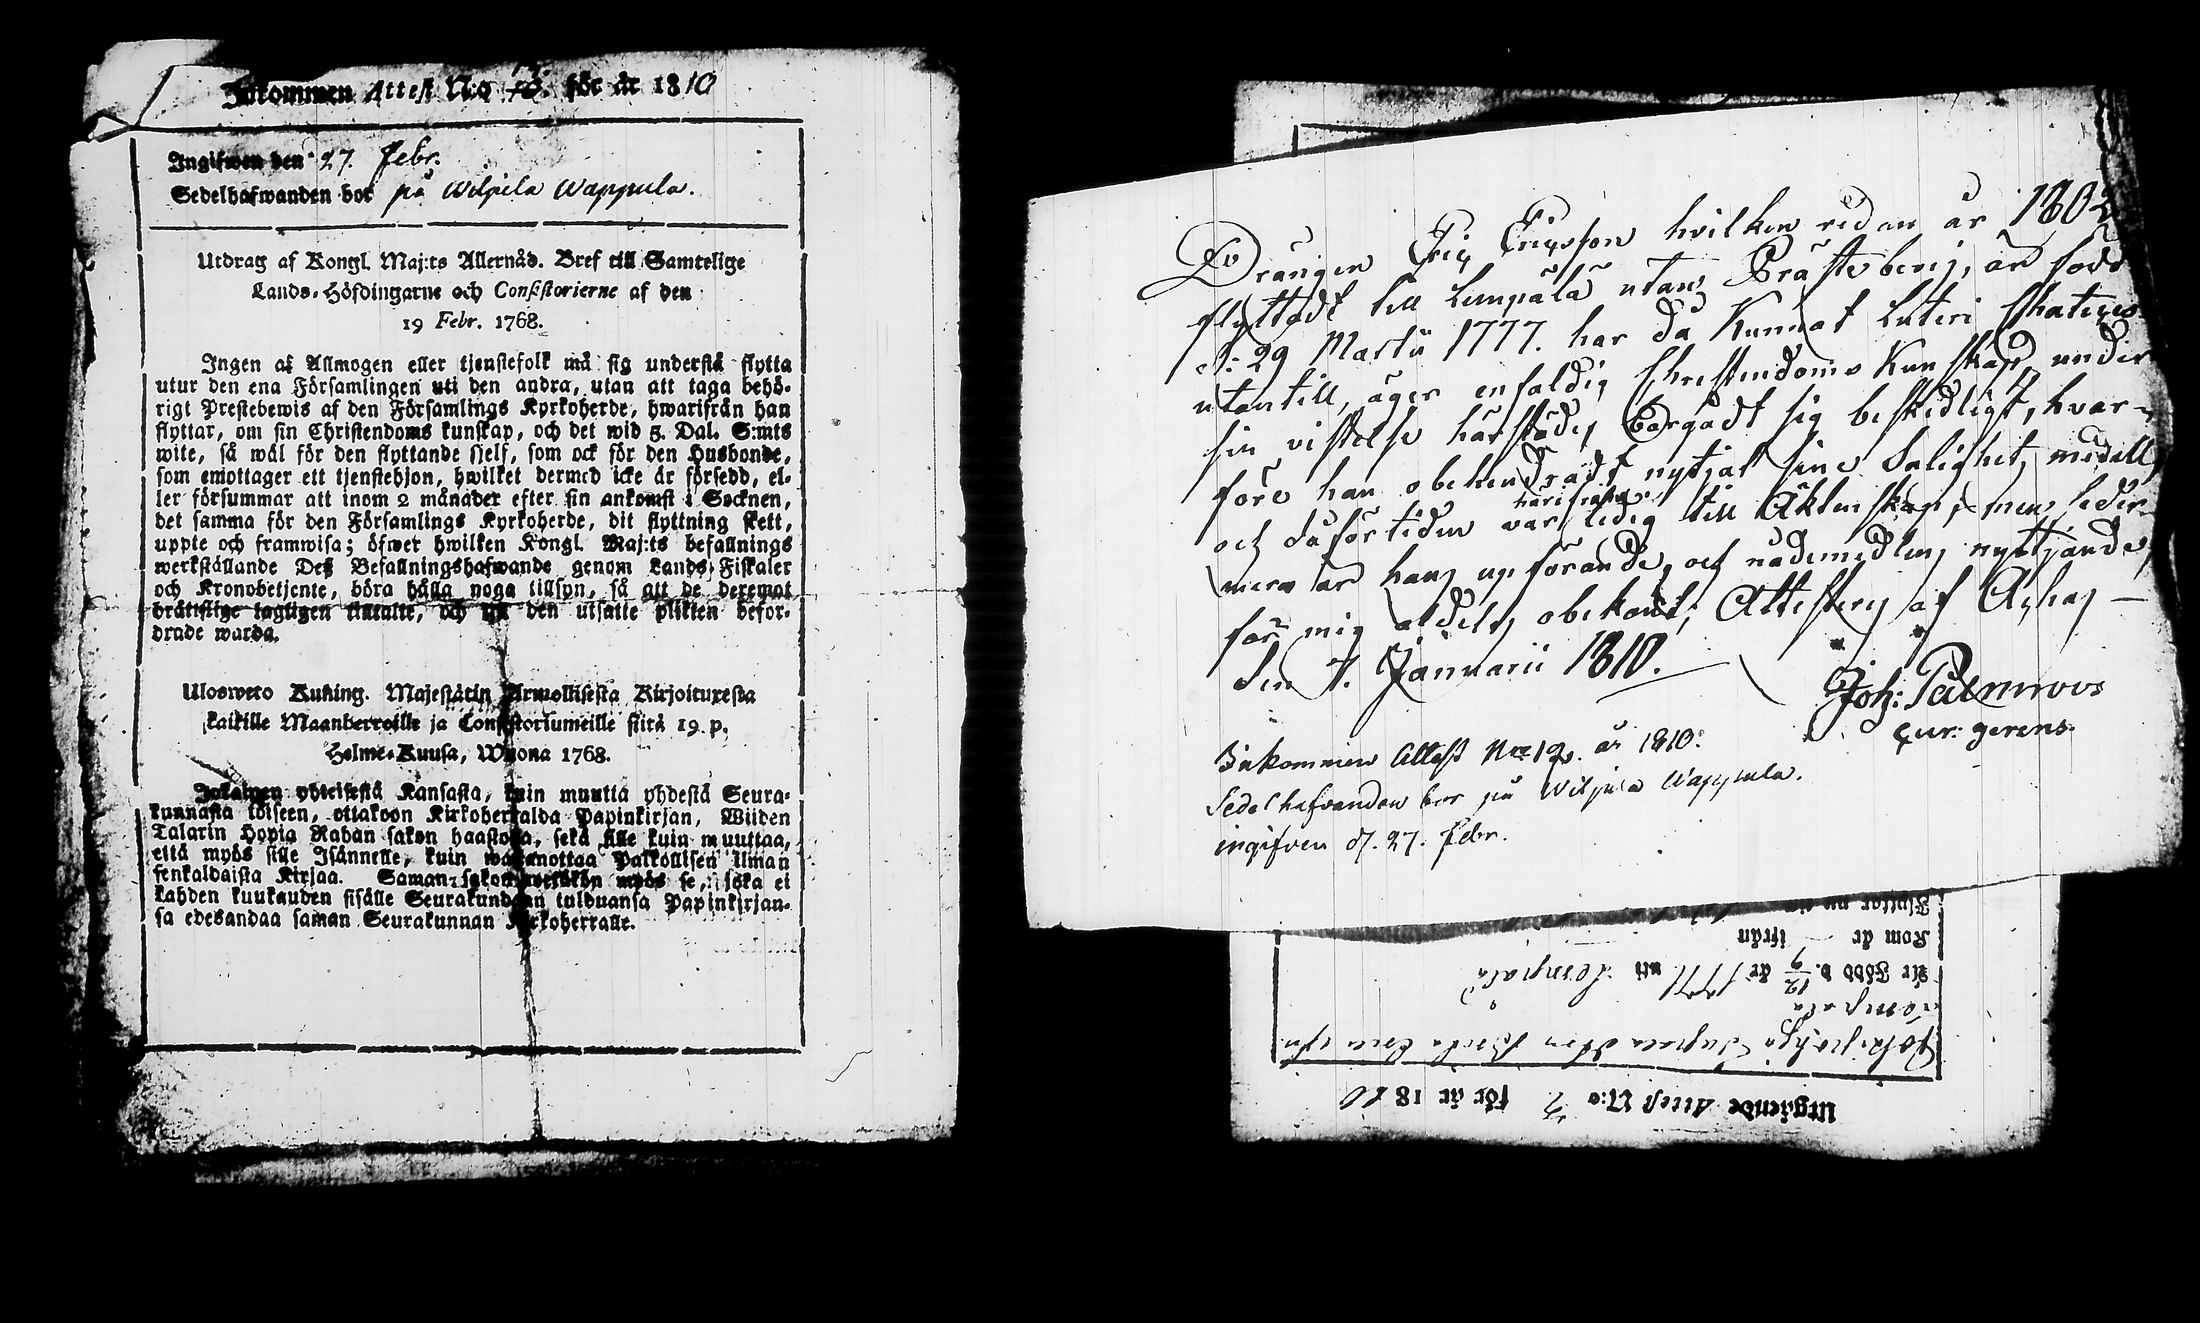 Inkommen Attest N:o 18. för år 1810
Ingifwen den 27. Febr.
Sedelhafwanden bor på Wilpila Wappula.
Utdrag af Kongl. Maj:ts Allernåd. Bref till Samtelige
Lands-Höfdingarne och Consistorierne af den
19 Febr. 1768.
Ingen af Allmogen eller tjenstefolk må sig understå flytta
utur den ena Församlingen uti den andra, utan att taga behö-
rigt Prestebewis af den Församlings Kyrkoherde, hwarifrån han
flyttar, om sin Christendoms kunskap, och det wid 5. Dal. S:mts
wite, så wäl för den flyttande sjelf, som ock för den Husbonde,
som emottager ett tjenstehjon, hwilket dermed icke är försedd, el-
ler försummar att inom 2 månader efter sin ankomst i Socknen,
det samma för den Församlings Kyrkoherde, dit flyttning skett,
uppte och framwisa; öfwer hwilken Kongl. Maj:ts befallnings
werkställande Deß Befallningshafwande genom Lands-Fiskaler
och Kronobetjente, böra hålla noga tillsyn, så att de deremot
brättslige lagligen tiltalte, och til den utsatte plikten befor-
drade warda.
Ulosweto Kuning. Majestätin Armollisesta Kirjoituxesta
kaikille Maanherroille ja Consistoriumeille siitä 19. p.
Helme-Kuusa, Wuona 1768.
Jokainen yhteisestä Kansasta, kuin muutta yhdestä Seura-
kunnasta toiseen, ottakoon Kirkoherralda Papinkirjan, Wiiden
Talarin Hopia Rahan sakon haastolla, sekä sille kuin muuttaa,
että myös sille Isännelle, kuin wastanottaa Palkollisen ilman
senkaldaista Kirjaa. Saman sakon wetäkön myös se, joka ei
kahden kuukauden sisälle Seurakundaan tulduansa Papinkirjan-
sa edesandaa saman Seurakunnan Kirkoherralle.
Drängen Eric Ericsson hvilken redan år 1802
flyttadt till Lempälä utan Prästebevis, är född
d. 29 Martii 1777. har då kunnat Luteri Chateches
utantill, äger enfaldig Christendoms Kunskap, under
sin vistelse härstädes borgadt sig beskedligt, hvar-
före han obehindradt nytjat sine Salighets medell,
härifrån
och då för tiden var ledig till Äktenskap; men seder-
mera är hans upförande, och nådemedlens nyttjande
för mig aldeles obekant; Attesteras af
den 7. Januarii 1810.
Joh: Palmroos
cur: gerens.
Inkommen Attest No 19. år 1810.
Sedelhafvanden bor på Wilpila Wappula.
ingifven d. 27. Febr.
Flyttar nu
Kom år ifrån
Är Född d. 12/9 år 1771 uti Lempälä
Lempälä
Utgående Attest N:o 3 för år 1810